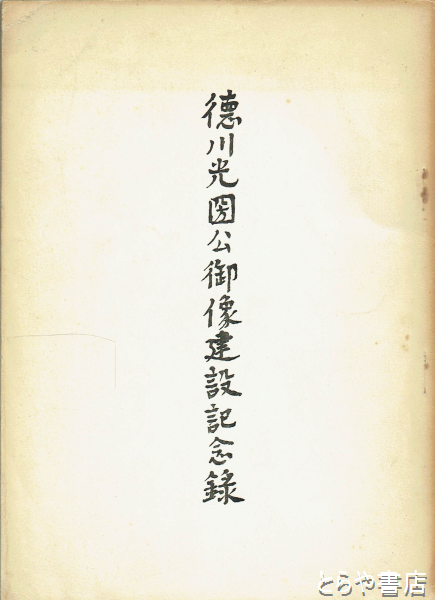 徳川光圀公御像建設記念録
とらや書店